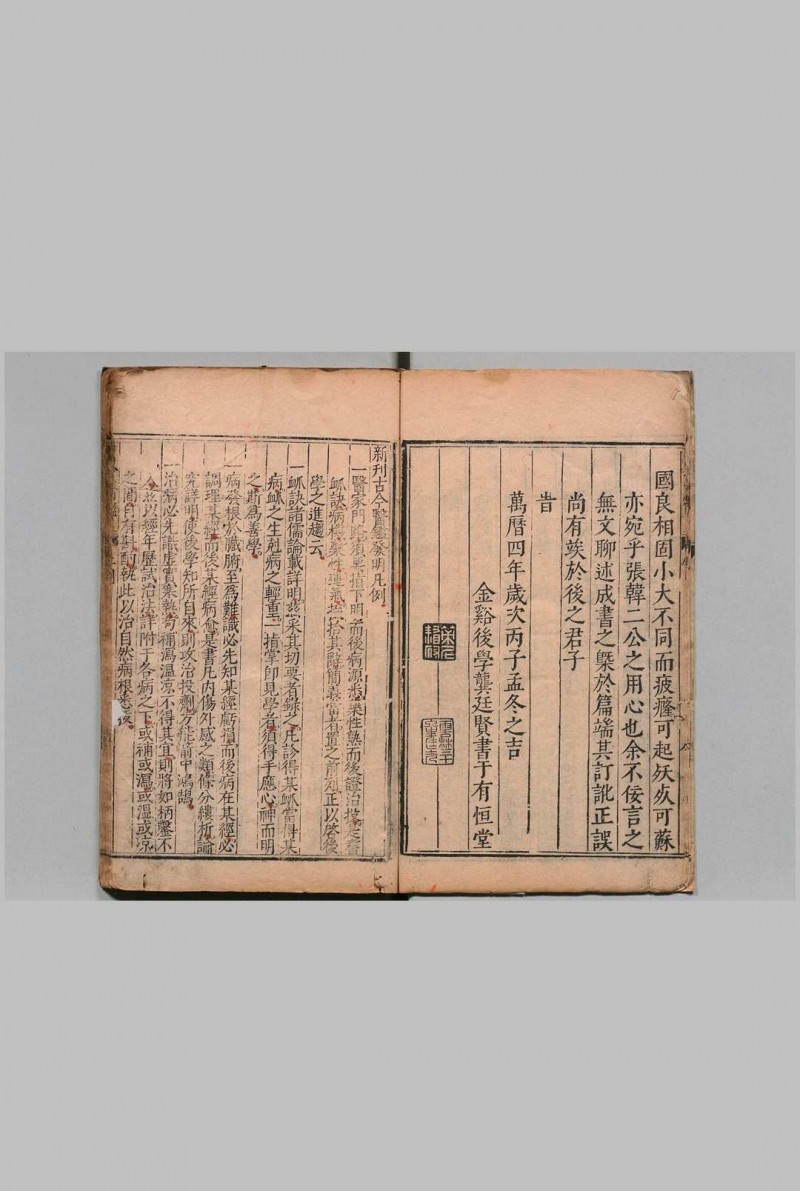 國良相固小大不同而疲癃可起夭疚可蘇
亦宛乎張韓二公之用心也余不佞言之
無文聊述成書之槩於篇端其訂訛正誤
尚有竢於後之君子
旹
萬曆四年歲次丙子孟冬之吉
金谿後學龔廷賢書于有恒堂
新刊古今醫鑑發明凡例
一醫家門路須要指下明而後病源眞藥性熟而後證治
脉訣病機藥性運氣 拾其辭簡義當者置之前列正以啓後
學之進趨云
一脉訣諸儒論載詳明玆采其切要者錄之凡診得某脉當得某
病脉之生剋病之輕重一指掌卽見學者須得手應心神而明
之斯爲善學
一病發根於臟腑至爲難識必先知某經虧損而後病在某經必
調理某經而後某經病愈是書凡內傷外感之類條分縷析論
究詳明使後學知所自來則攻治投劑方能前中鴻鵠
一治病必先識虛實寒熱苟補瀉溫凉不得其宜則將如柄鑿不
入玆以經年歷試治法詳附于各病之下或補或瀉或溫或凉
之間自有斟酌執此以治自然病根悉